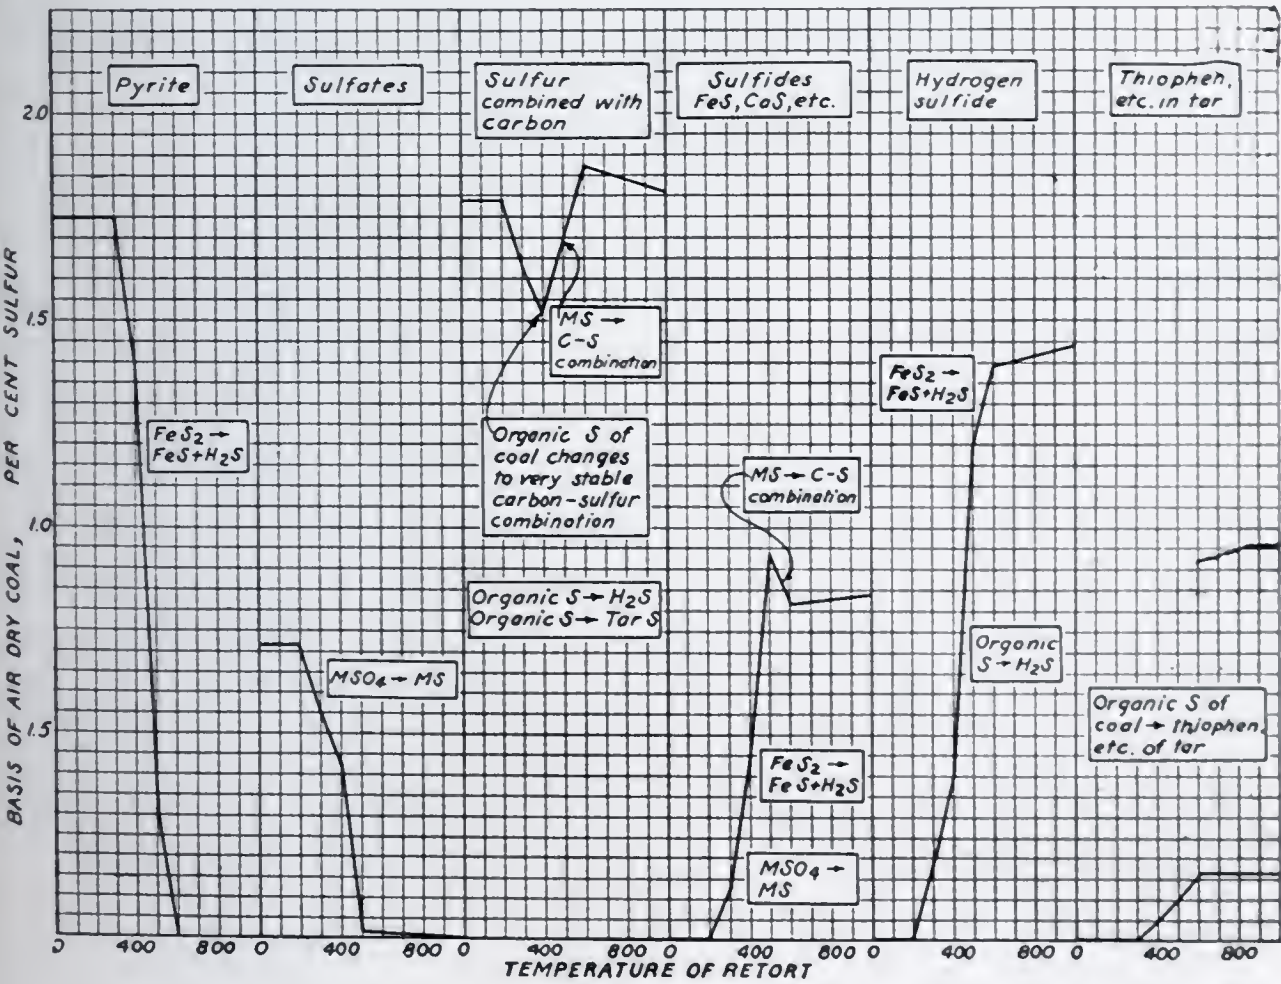 Pyrite
Sulfates
Sulfur
combined with
carbon
Sulfides
FeS, CaS, etc.
Hydrogen
sulfide
Thiophen,
etc. in tar
2.0
1.5
1.0
.5
BASIS OF AIR DRY COAL, PER CENT SULFUR
FeS2→
FeS+H2S
MSO4→ MS
MS →
C-S
combination
Organic S of
coal changes
to very stable
carbon-sulfur
combination
Organic S→ H2S
Organic S→ Tar S
MS→ C-S
combination
FeS2 →
FeS+H2S
MSO4→
MS
FeS2 →
FeS+H2S
Organic
S→H2S
Organic S of
coal→ thiophen,
etc. of tar
0 400 800 0 400 800 0 400 800 0 400 800 0 400 800 0 400 800
TEMPERATURE OF RETORT